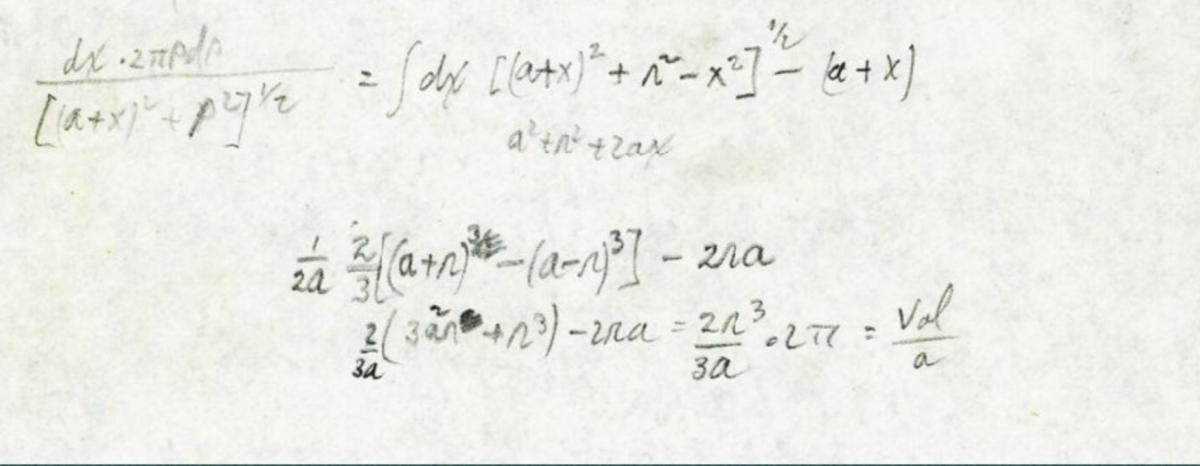 dx · 2πρdρ / [(a+x)² + ρ²]^1/2 = ∫ dx [(a+x)² + r² − x²]^1/2 − (a + x)
a² + r² + 2ax
1/2a 2/3 [(a+r)³ − (a−r)³] − 2ra
2/3a (3a²r + r³) − 2ra = 2r³/3a · 2π = Vol/a